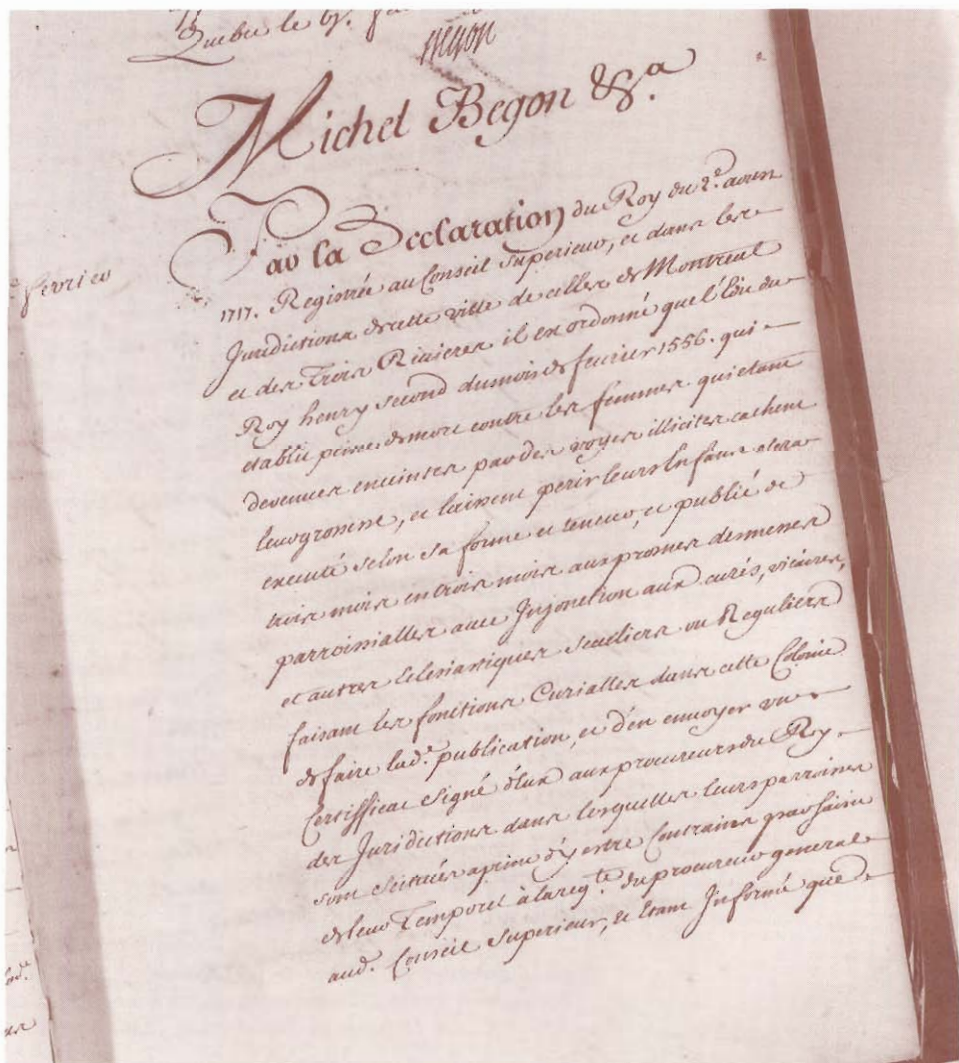 Quebec le
Begon
Michel Begon &.a
fevrier
Par la Declaration du Roy du 2.e aoust
1717. Registrée au Conseil Superieur, et dans les
Juridictions de cette ville de celles de Montreal
et des Trois Rivieres il est ordonné que l'Edit du
Roy henry second du mois de fevrier 1556. qui
etablit peine de mort contre les femmes qui etant
devenues enceintes par des voyes illicites cachent
leur grossesse, et laissent perir leurs Enfans sera
executé selon sa forme et teneur, et publié de
trois mois en trois mois aux prosnes des messes
parroissialles avec Injonction aux curés, vicaires,
et autres Eclesiastiques Seculiers ou Reguliers
faisant les fonctions Curialles dans cette Colonie
de faire lad.e publication, et d'en envoyer un
Certifficat signé d'Eux aux procureurs du Roy
des Juridictions dans lesquelles leurs parroisses
sont scituées a peine d'y estre Contraints par saisie
de leur Temporel à la req.te du procureur general
aud. Conseil Superieur, et Etant Informé que